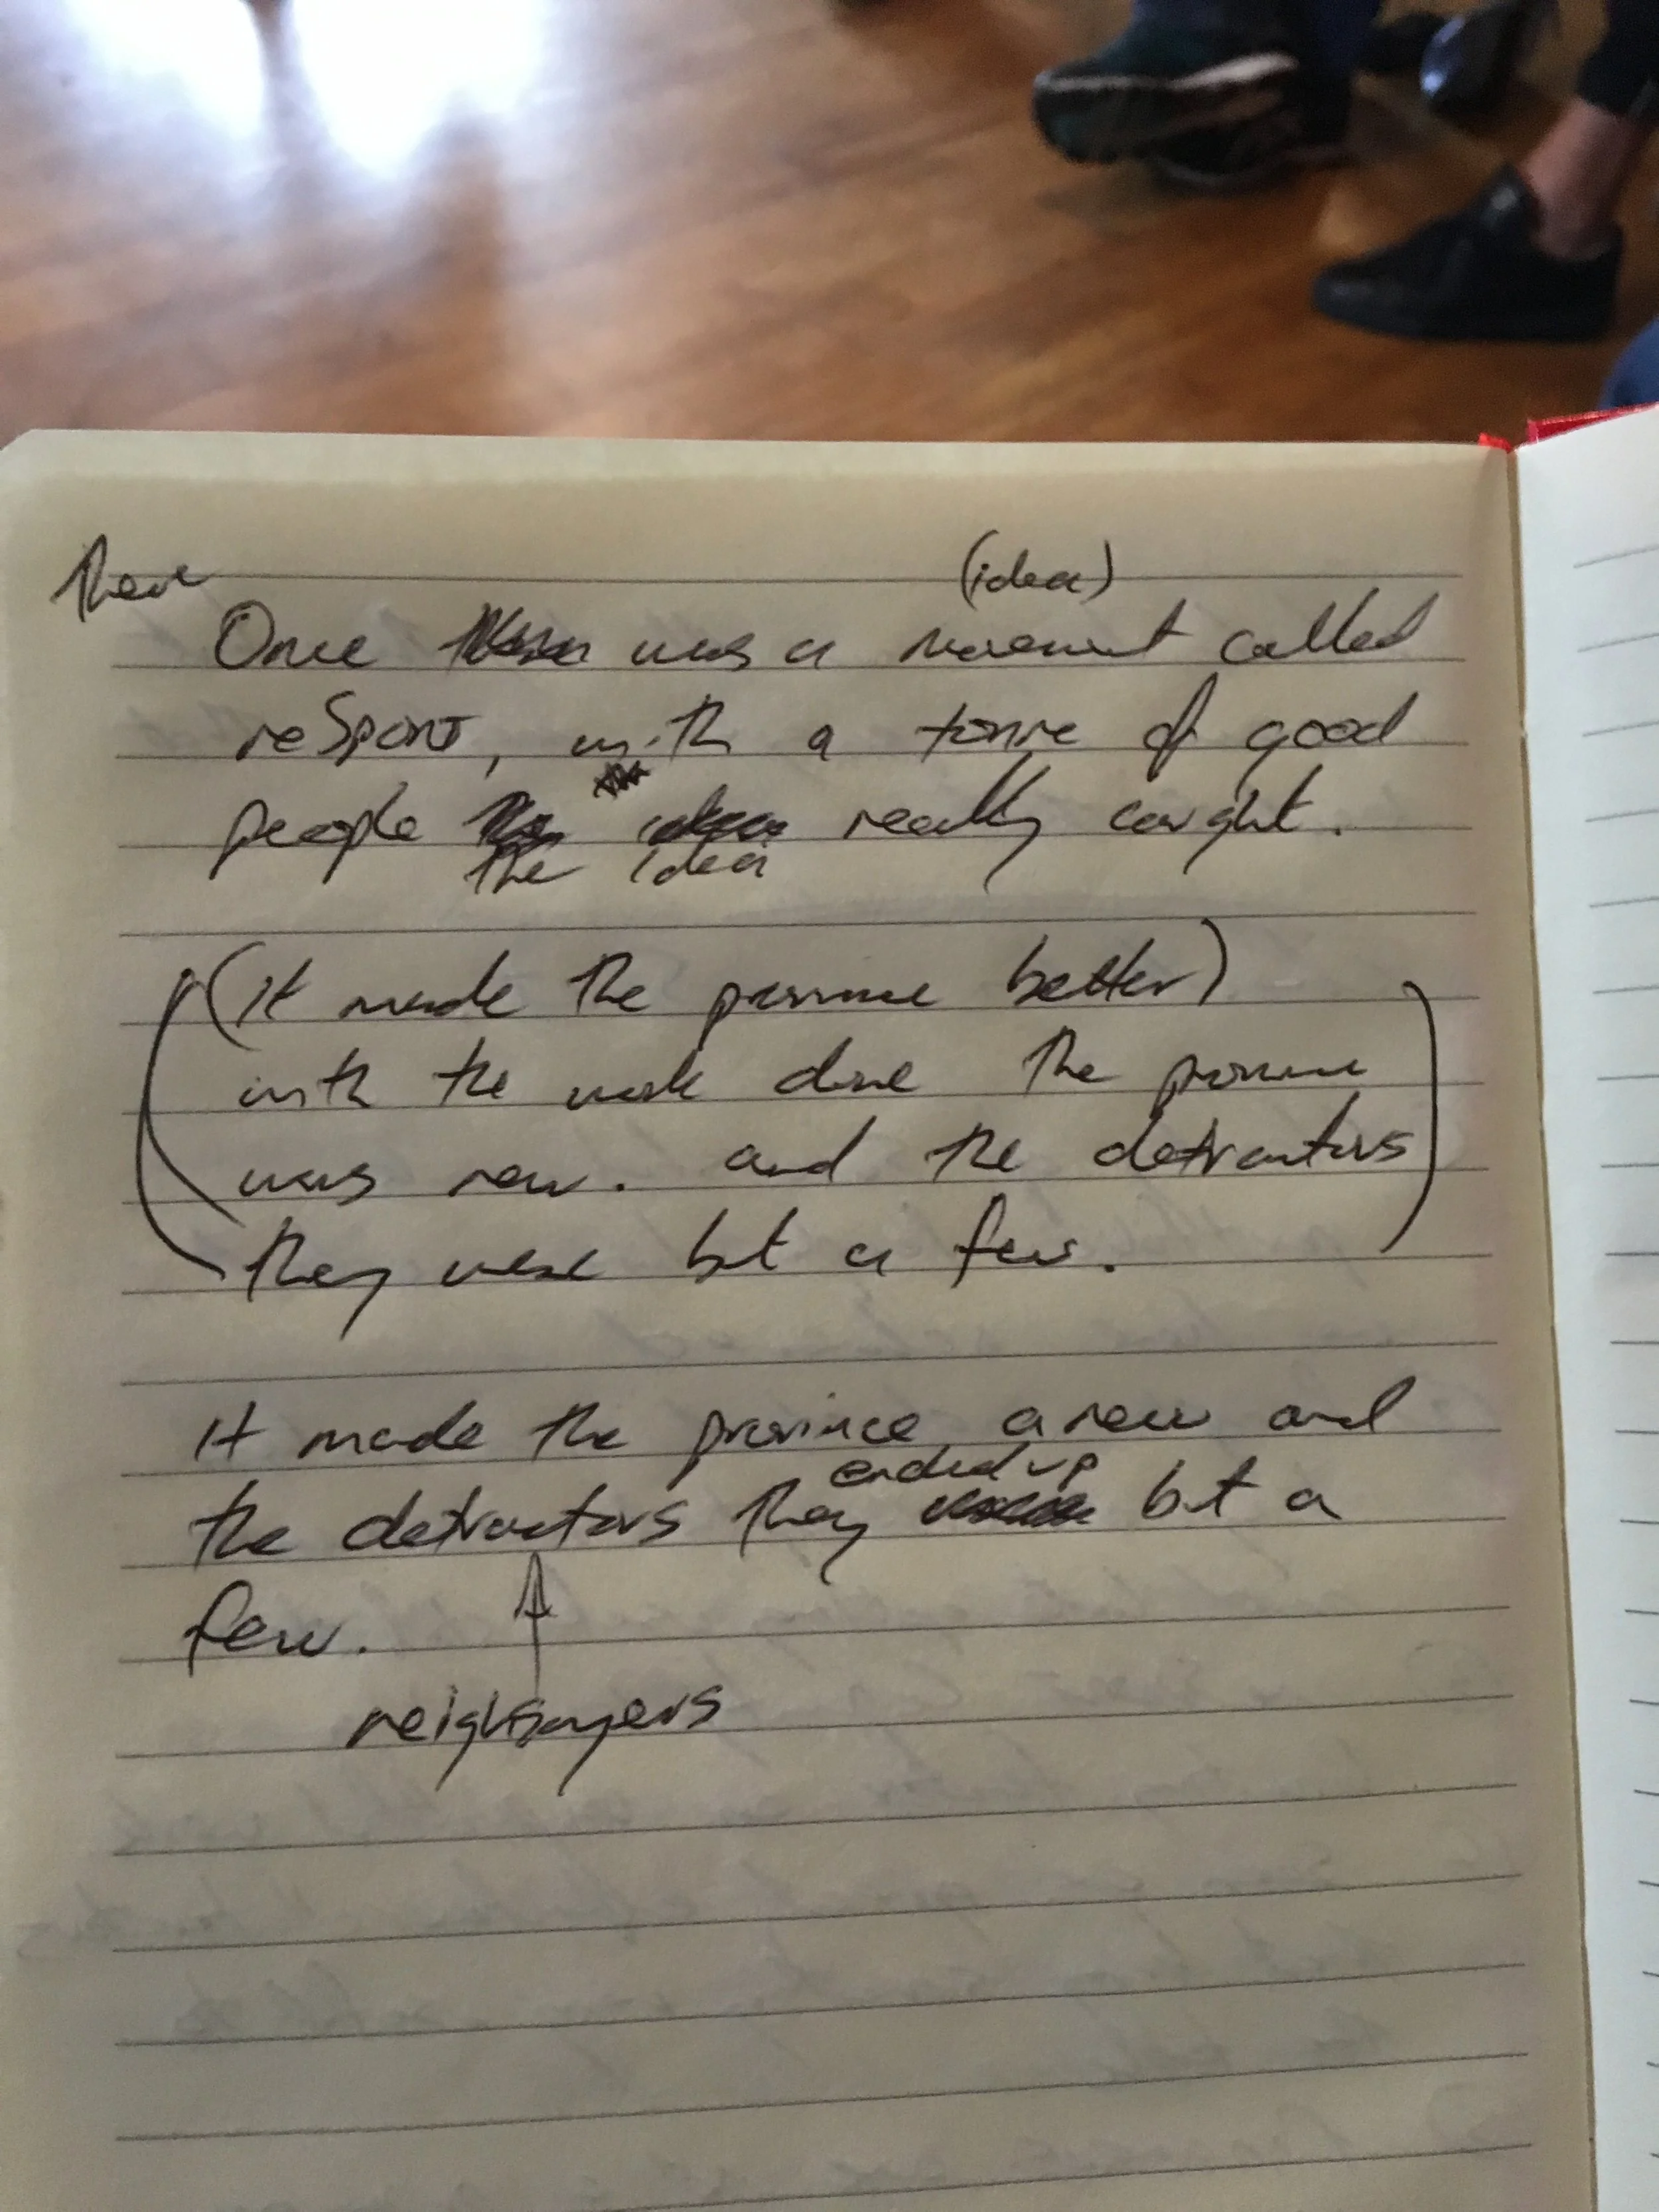 There
(idea)
Once was a movement called
reSport, with a tonne of good
people really caught.
the idea
(it made the province better)
with the work done the province
was new. and the detractors
they were but a few.
it made the province anew and
ended up
the detractors they but a
few.
neighsayers